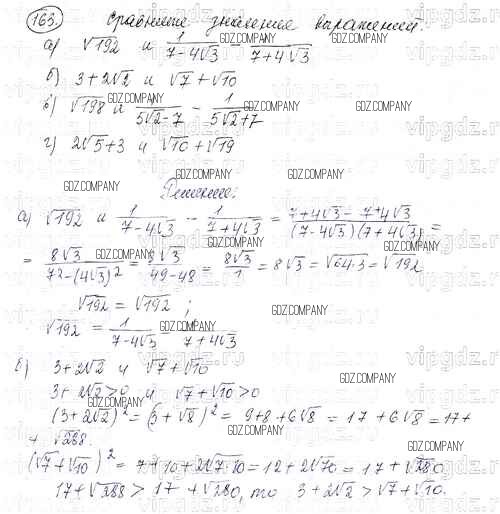 163. Сравните значения выражений:
а) √192 и 1/(7-4√3) - 1/(7+4√3)
б) 3+2√2 и √7+√10
в) √198 и 1/(5√2-7) - 1/(5√2+7)
г) 2√5+3 и √10+√19
Решение:
а) √192 и 1/(7-4√3) - 1/(7+4√3) = (7+4√3 - 7+4√3)/((7-4√3)(7+4√3)) =
= 8√3/(7²-(4√3)²) = 8√3/(49-48) = 8√3/1 = 8√3 = √64·3 = √192
√192 = √192 ;
√192 = 1/(7-4√3) - 1/(7+4√3)
б) 3+2√2 и √7+√10
3+2√2>0 и √7+√10>0
(3+2√2)² = (3+√8)² = 9+8+6√8 = 17+6√8 = 17+
+ √288.
(√7+√10)² = 7+10+2√7·10 = 12+2√70 = 17+√280
17+√288 > 17+√280, то 3+2√2 > √7+√10.
GDZ.COMPANY
vipgdz.ru